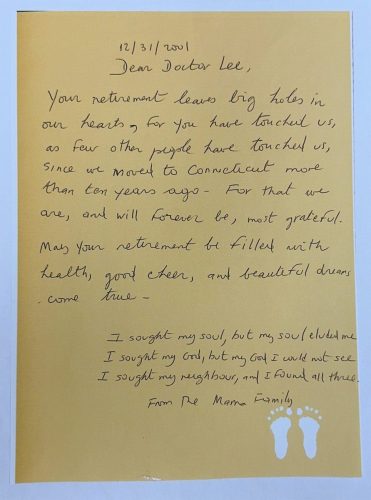 12/31/2001
Dear Doctor Lee,
Your retirement leaves big holes in
our hearts, for you have touched us,
as few other people have touched us,
since we moved to Connecticut more
than ten years ago - For that we
are, and will forever be, most grateful.
May your retirement be filled with
health, good cheer, and beautiful dreams
come true -
I sought my soul, but my soul eluded me
I sought my God, but my God I would not see
I sought my neighbour, and I found all three.
From The Mama Family